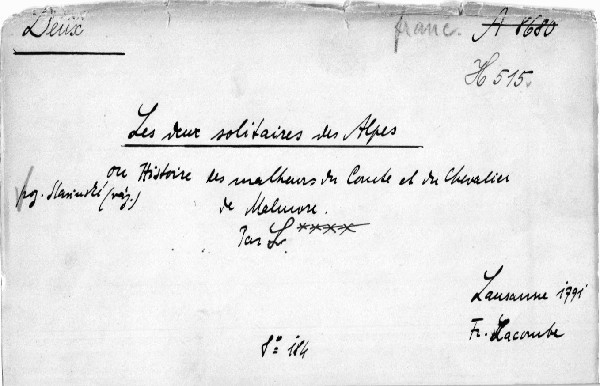 Deux
franc. A 8680
H 515.
Les deux solitaires des Alpes
ou Histoire des malheurs du Comte et du Chevalier
de Malmore.
Par L. ****
Lausanne 1791
Fr. Lacombe
8° 184